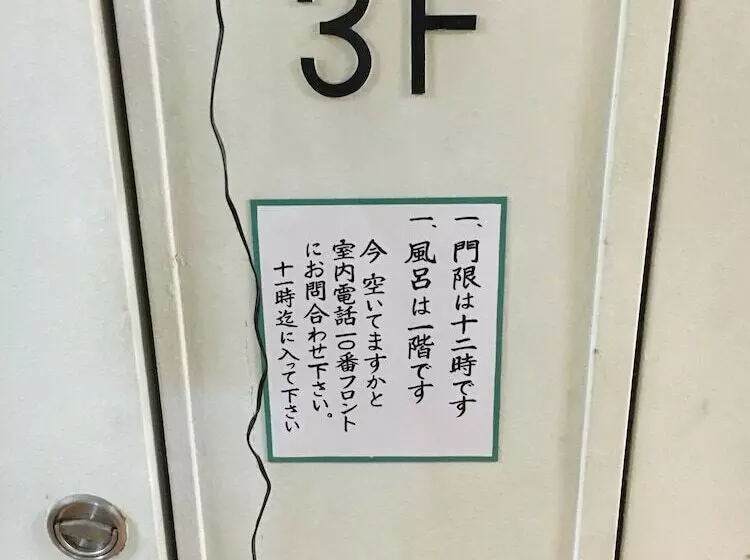 3F
一、門限は十二時です
一、風呂は一階です
今 空いてますかと
室内電話一〇番フロント
にお問合わせ下さい。
十一時迄に入って下さい